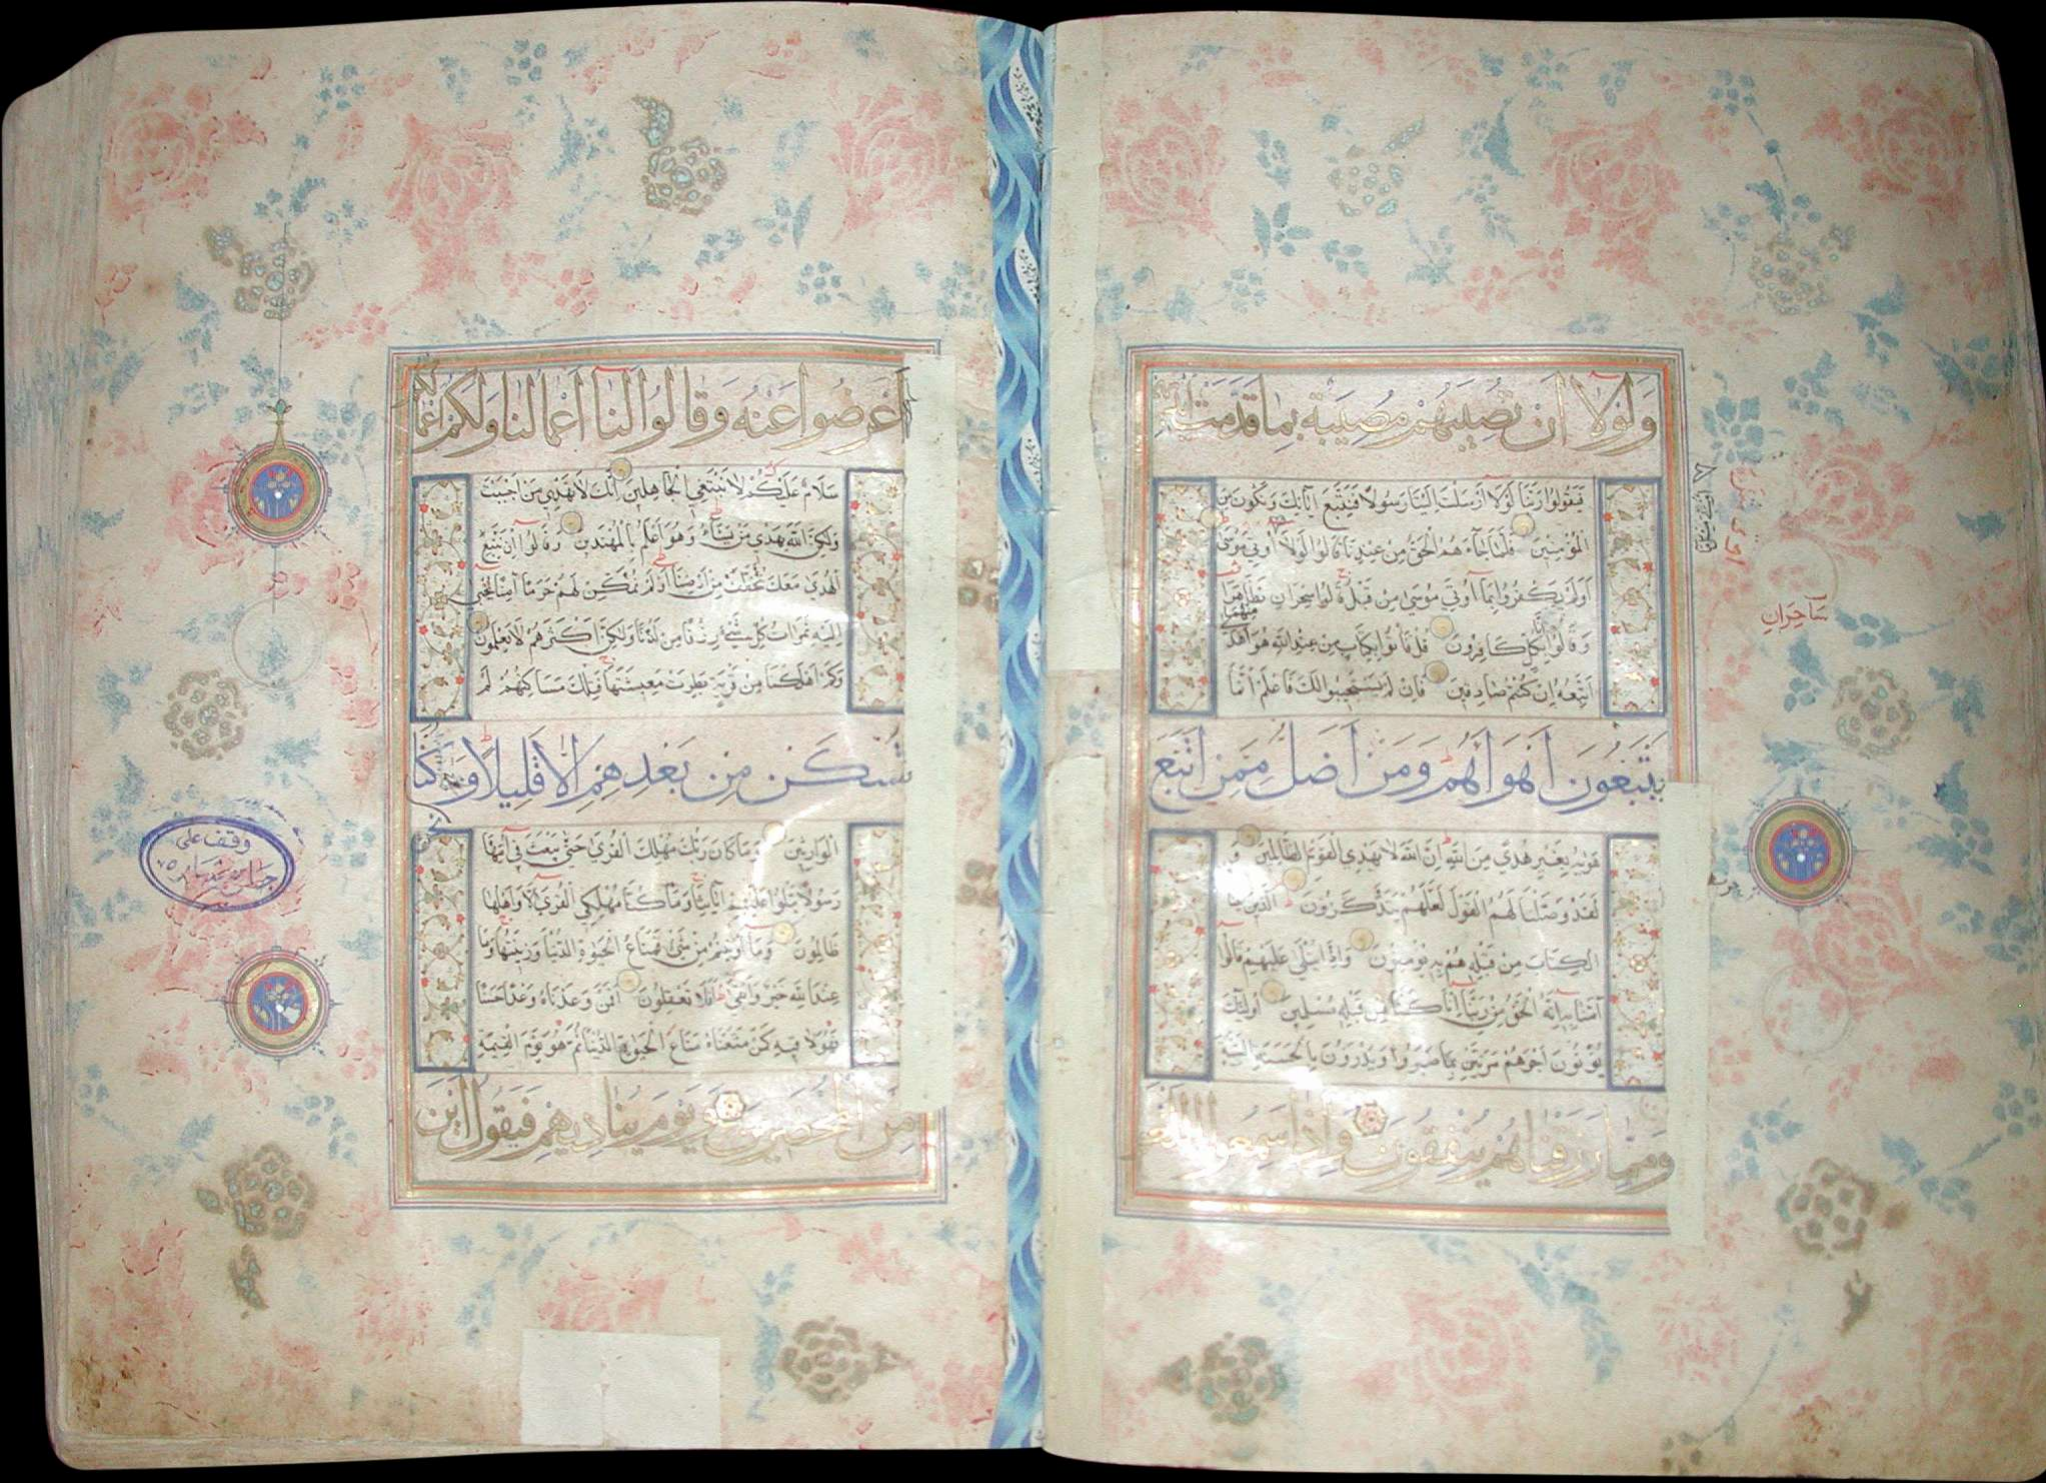 وَلَوْلَا أَنْ تُصِيبَهُمْ مُصِيبَةٌ بِمَا قَدَّمَتْ أَيْدِيهِمْ
فَيَقُولُوا رَبَّنَا لَوْلَا أَرْسَلْتَ إِلَيْنَا رَسُولًا فَنَتَّبِعَ آيَاتِكَ وَنَكُونَ مِنَ
الْمُؤْمِنِينَ فَلَمَّا جَاءَهُمُ الْحَقُّ مِنْ عِنْدِنَا قَالُوا لَوْلَا أُوتِيَ مُوسَى
أَوَلَمْ يَكْفُرُوا بِمَا أُوتِيَ مُوسَى مِنْ قَبْلُ قَالُوا سِحْرَانِ تَظَاهَرَا
وَقَالُوا إِنَّا بِكُلٍّ كَافِرُونَ قُلْ فَأْتُوا بِكِتَابٍ مِنْ عِنْدِ اللَّهِ هُوَ أَهْدَى مِنْهُمَا
أَتَّبِعْهُ إِنْ كُنْتُمْ صَادِقِينَ فَإِنْ لَمْ يَسْتَجِيبُوا لَكَ فَاعْلَمْ أَنَّمَا
يَتَّبِعُونَ أَهْوَاءَهُمْ وَمَنْ أَضَلُّ مِمَّنِ اتَّبَعَ
هَوَيهُ بِغَيْرِ هُدًى مِنَ اللَّهِ إِنَّ اللَّهَ لَا يَهْدِي الْقَوْمَ الظَّالِمِينَ وَ
لَقَدْ وَصَّلْنَا لَهُمُ الْقَوْلَ لَعَلَّهُمْ يَتَذَكَّرُونَ الَّذِينَ
الْكِتَابَ مِنْ قَبْلِهِ هُمْ بِهِ يُؤْمِنُونَ وَإِذَا يُتْلَى عَلَيْهِمْ قَالُوا
آمَنَّا بِهِ إِنَّهُ الْحَقُّ مِنْ رَبِّنَا إِنَّا كُنَّا مِنْ قَبْلِهِ مُسْلِمِينَ أُولَئِكَ
يُؤْتَوْنَ أَجْرَهُمْ مَرَّتَيْنِ بِمَا صَبَرُوا وَيَدْرَءُونَ بِالْحَسَنَةِ السَّيِّئَةَ
وَمِمَّا رَزَقْنَاهُمْ يُنْفِقُونَ وَإِذَا سَمِعُوا اللَّغْوَ
سَاحِرَانِ
أَعْرَضُوا عَنْهُ وَقَالُوا لَنَا أَعْمَالُنَا وَلَكُمْ أَعْمَالُكُمْ
سَلَامٌ عَلَيْكُمْ لَا نَبْتَغِي الْجَاهِلِينَ إِنَّكَ لَا تَهْدِي مَنْ أَحْبَبْتَ
وَلَكِنَّ اللَّهَ يَهْدِي مَنْ يَشَاءُ وَهُوَ أَعْلَمُ بِالْمُهْتَدِينَ وَقَالُوا إِنْ نَتَّبِعِ
الْهُدَى مَعَكَ نُتَخَطَّفْ مِنْ أَرْضِنَا أَوَلَمْ نُمَكِّنْ لَهُمْ حَرَمًا آمِنًا يُجْبَى
إِلَيْهِ ثَمَرَاتُ كُلِّ شَيْءٍ رِزْقًا مِنْ لَدُنَّا وَلَكِنَّ أَكْثَرَهُمْ لَا يَعْلَمُونَ
وَكَمْ أَهْلَكْنَا مِنْ قَرْيَةٍ بَطِرَتْ مَعِيشَتَهَا فَتِلْكَ مَسَاكِنُهُمْ لَمْ
تُسْكَنْ مِنْ بَعْدِهِمْ إِلَّا قَلِيلًا وَكُنَّا نَحْنُ
الْوَارِثِينَ وَمَا كَانَ رَبُّكَ مُهْلِكَ الْقُرَى حَتَّى يَبْعَثَ فِي أُمِّهَا
رَسُولًا يَتْلُوا عَلَيْهِمْ آيَاتِنَا وَمَا كُنَّا مُهْلِكِي الْقُرَى إِلَّا وَأَهْلُهَا
ظَالِمُونَ وَمَا أُوتِيتُمْ مِنْ شَيْءٍ فَمَتَاعُ الْحَيَوةِ الدُّنْيَا وَزِينَتُهَا وَمَا
عِنْدَ اللَّهِ خَيْرٌ وَأَبْقَى أَفَلَا تَعْقِلُونَ أَفَمَنْ وَعَدْنَاهُ وَعْدًا حَسَنًا
فَهُوَ لَاقِيهِ كَمَنْ مَتَّعْنَاهُ مَتَاعَ الْحَيَوةِ الدُّنْيَا ثُمَّ هُوَ يَوْمَ الْقِيَمَةِ
مِنَ الْمُحْضَرِينَ يَوْمَ يُنَادِيهِمْ فَيَقُولُ أَيْنَ
وقف على